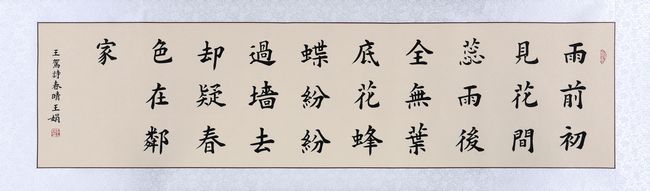 雨前初
見花間
蕊雨後
全無葉
底花蜂
蝶紛紛
過墻去
却疑春
色在鄰
家
王駕詩春晴王娟